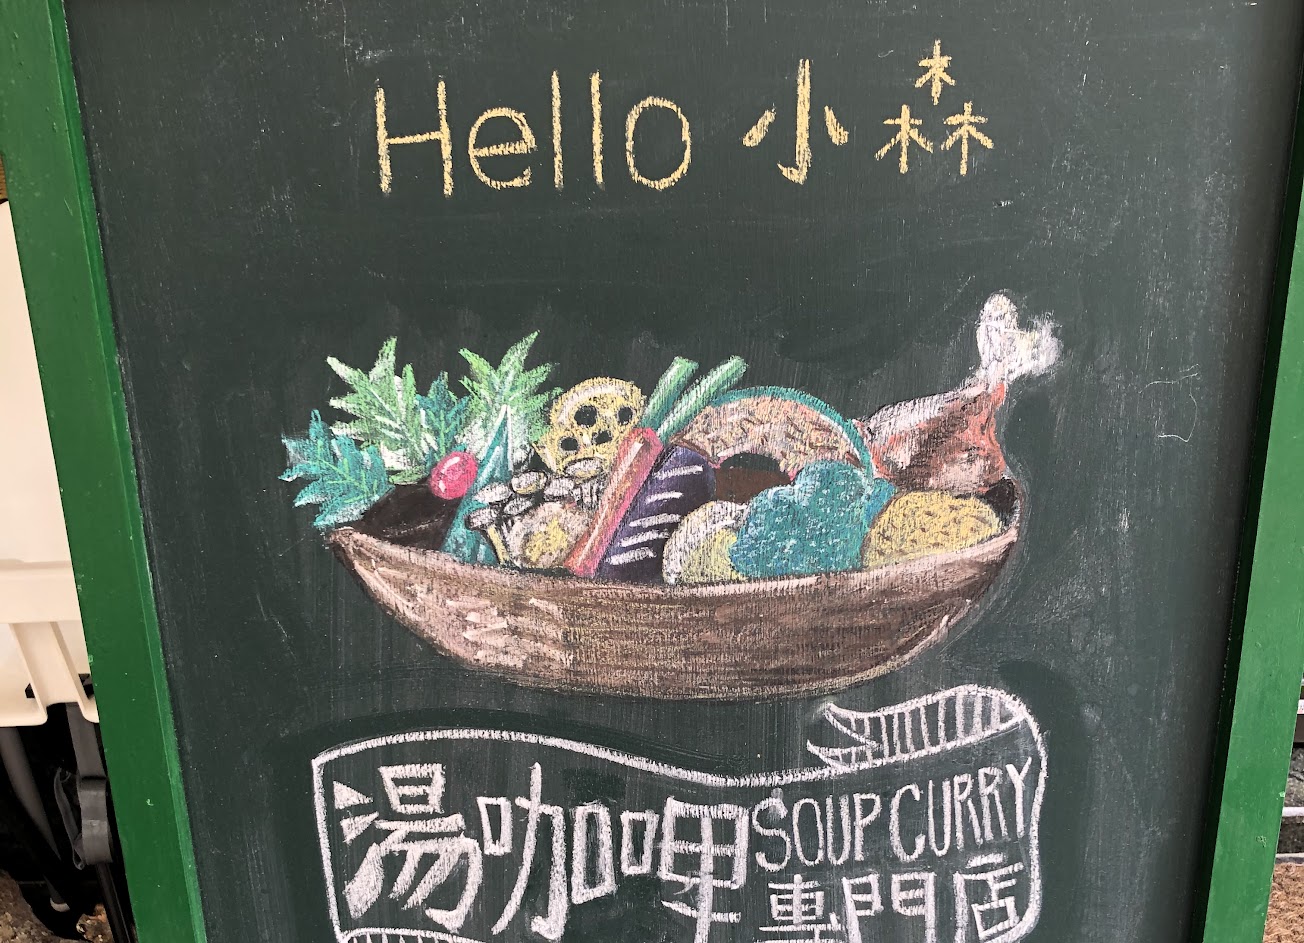 Hello 小森
湯咖哩 SOUP CURRY
專門店